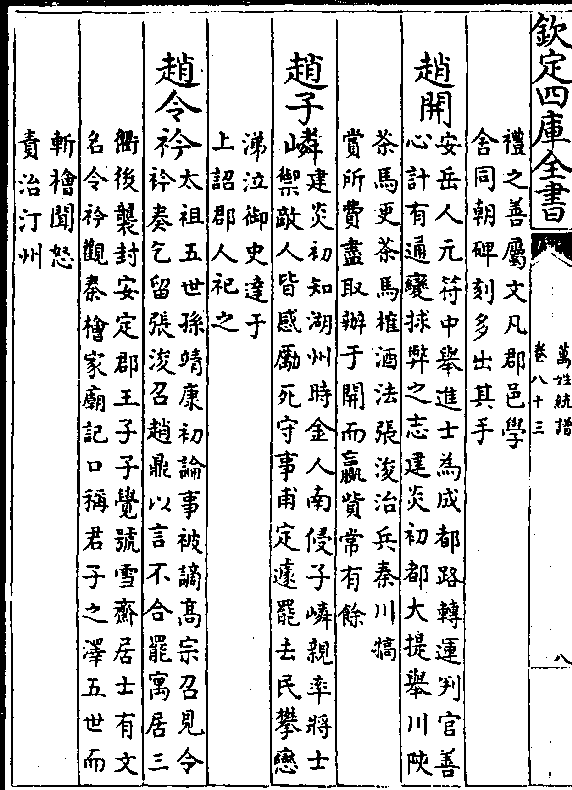 欽定四庫全書
萬姓統譜
卷八十三
八
禮之善屬文凡郡邑學
舍同朝碑刻多出其手
趙開
安岳人元符中舉進士為成都路轉運判官善
心計有通變捄弊之志建炎初都大提舉川陝
茶馬更茶馬榷酒法張浚治兵秦川犒
賞所費盡取辦于開而贏貲常有餘
趙子嶙
建炎初知湖州時金人南侵子嶙親率將士
禦敵人皆感勵死守事甫定遽罷去民攀戀
涕泣御史達于
上詔郡人祀之
趙令衿
太祖五世孫靖康初論事被謫高宗召見令
衿奏乞留張浚召趙鼎以言不合罷寓居三
衢後襲封安定郡王子子覺號雪齋居士有文
名令衿觀秦檜家廟記口稱君子之澤五世而
斬檜聞怒
責治汀州